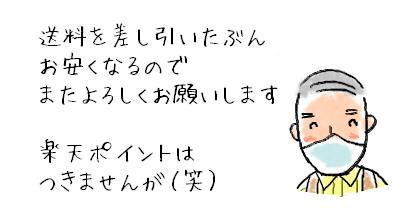 送料を差し引いたぶん
お安くなるので
またよろしくお願いします
楽天ポイントは
つきませんが(笑)